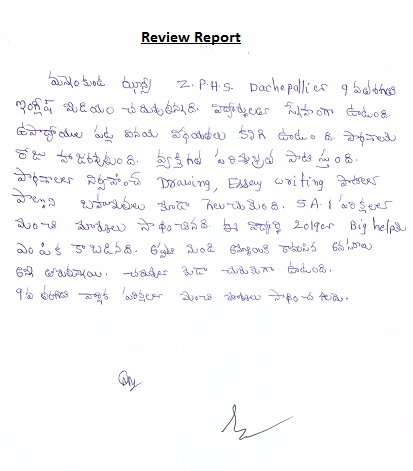 Review Report
మన్నెంకుండ ఝాన్సి Z.P.H.S. Dachepallilో 9 వతరగతి
ఇంగ్లీష్ మీడియం చదువుతున్నది. విద్యార్థులతో స్నేహంగా ఉంటుంది.
ఉపాధ్యాయుల పట్ల వినయ విధేయతలు కలిగి ఉంటుంది. పాఠశాలకు
రోజు హాజరవుతుంది. వ్యక్తిగత పరిశుభ్రత పాటిస్తుంది.
పాఠశాలలో నిర్వహించే Drawing, Essey writing పోటీలలో
పాల్గొని బహుమతులు కూడా గెలుచుకుంది. S.A.1 పరీక్షలలో
మంచి మార్కులు సాధించినది. ఈ విద్యార్థి 2019లో Big helpకు
ఎంపిక కాబడినది. అప్పటి నుండి ఆమెకు కావలసిన అవసరాలు
అన్ని తీరుతున్నాయి. చదువులో కూడా చురుకుగా ఉంటుంది.
9వ తరగతి వార్షిక పరీక్షలలో మంచి మార్కులు సాధించగలదు.